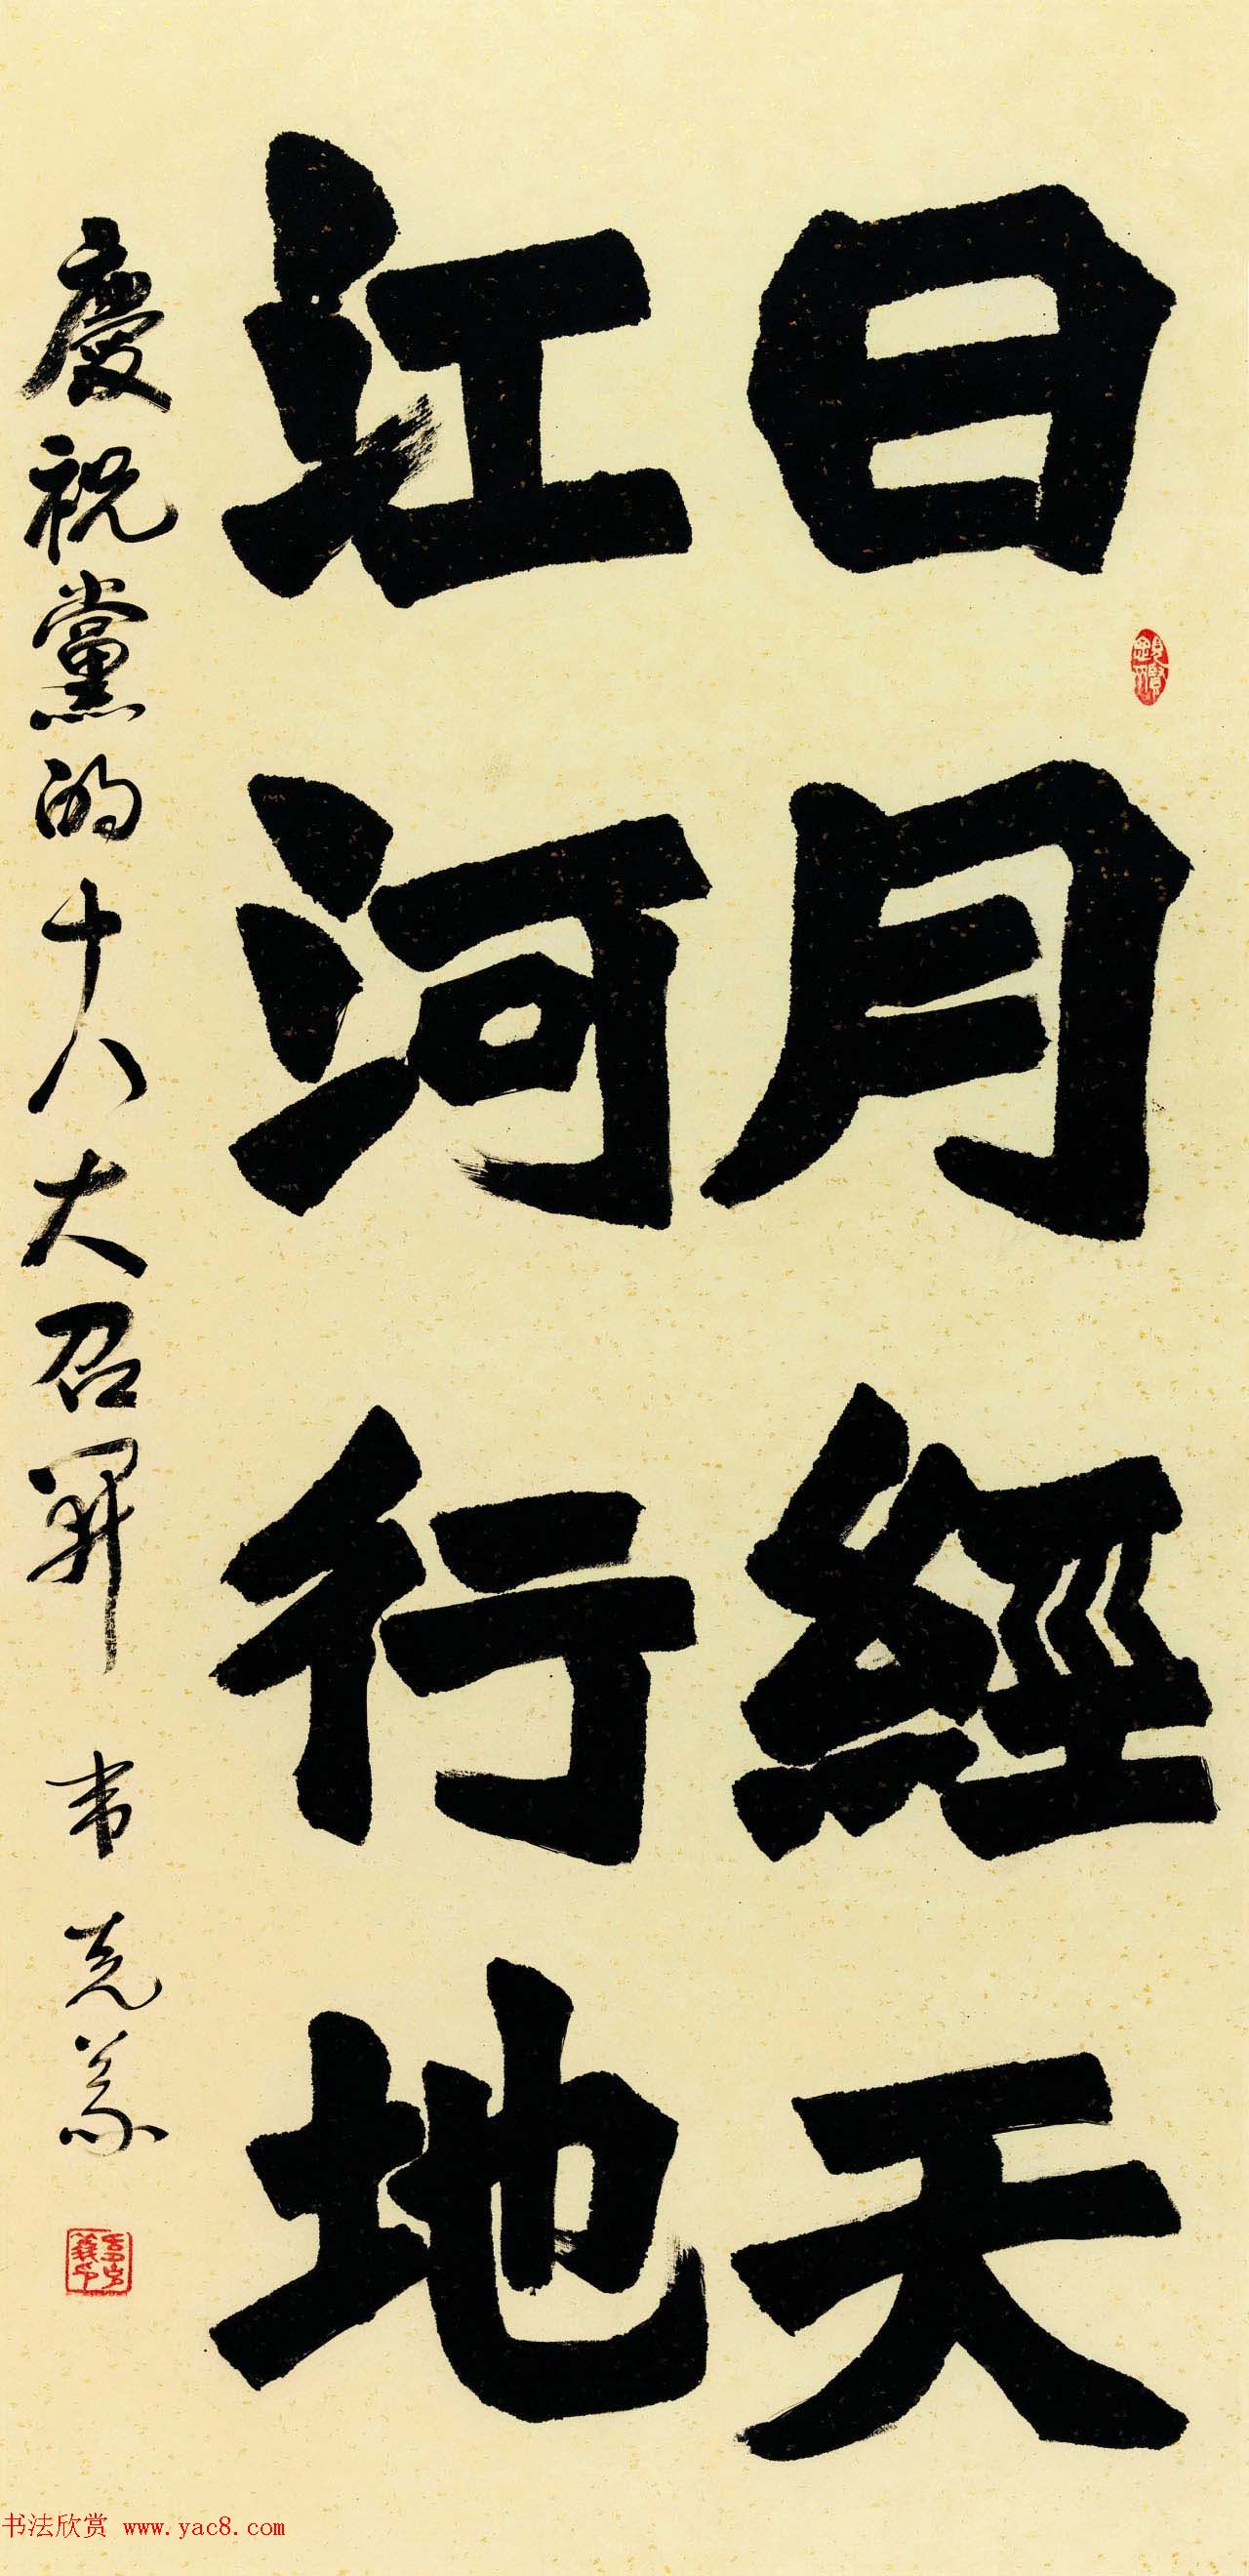 日月經天
江河行地
慶祝黨的十八大召開 韦克義
书法欣赏 www.yac8.com